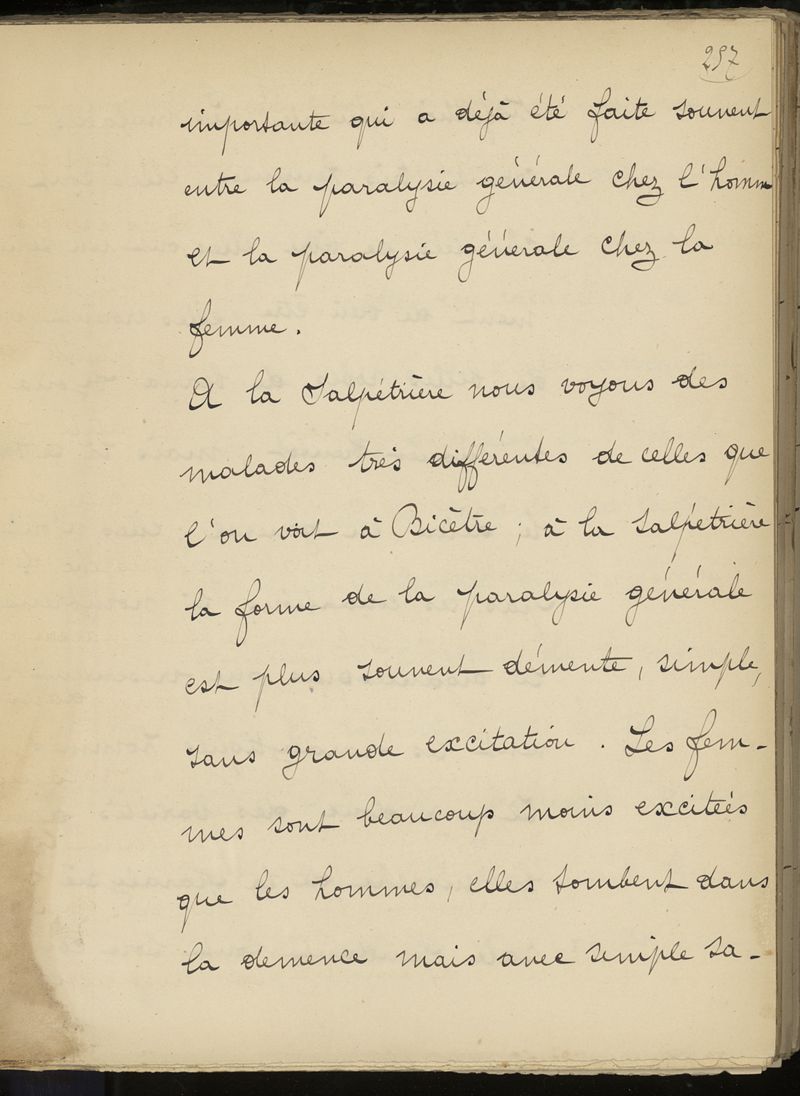 257
importante qui a déjà été faite souvent
entre la paralysie générale chez l'homme
et la paralysie générale chez la
femme.
A la Salpétrière nous voyons des
malades très différentes de celles que
l'on voit à Bicètre ; à la Salpétrière
la forme de la paralysie générale
est plus souvent démente, simple,
sans grande excitation. Les fem-
mes sont beaucoup moins excitées
que les hommes, elles tombent dans
la demence mais avec simple sa-